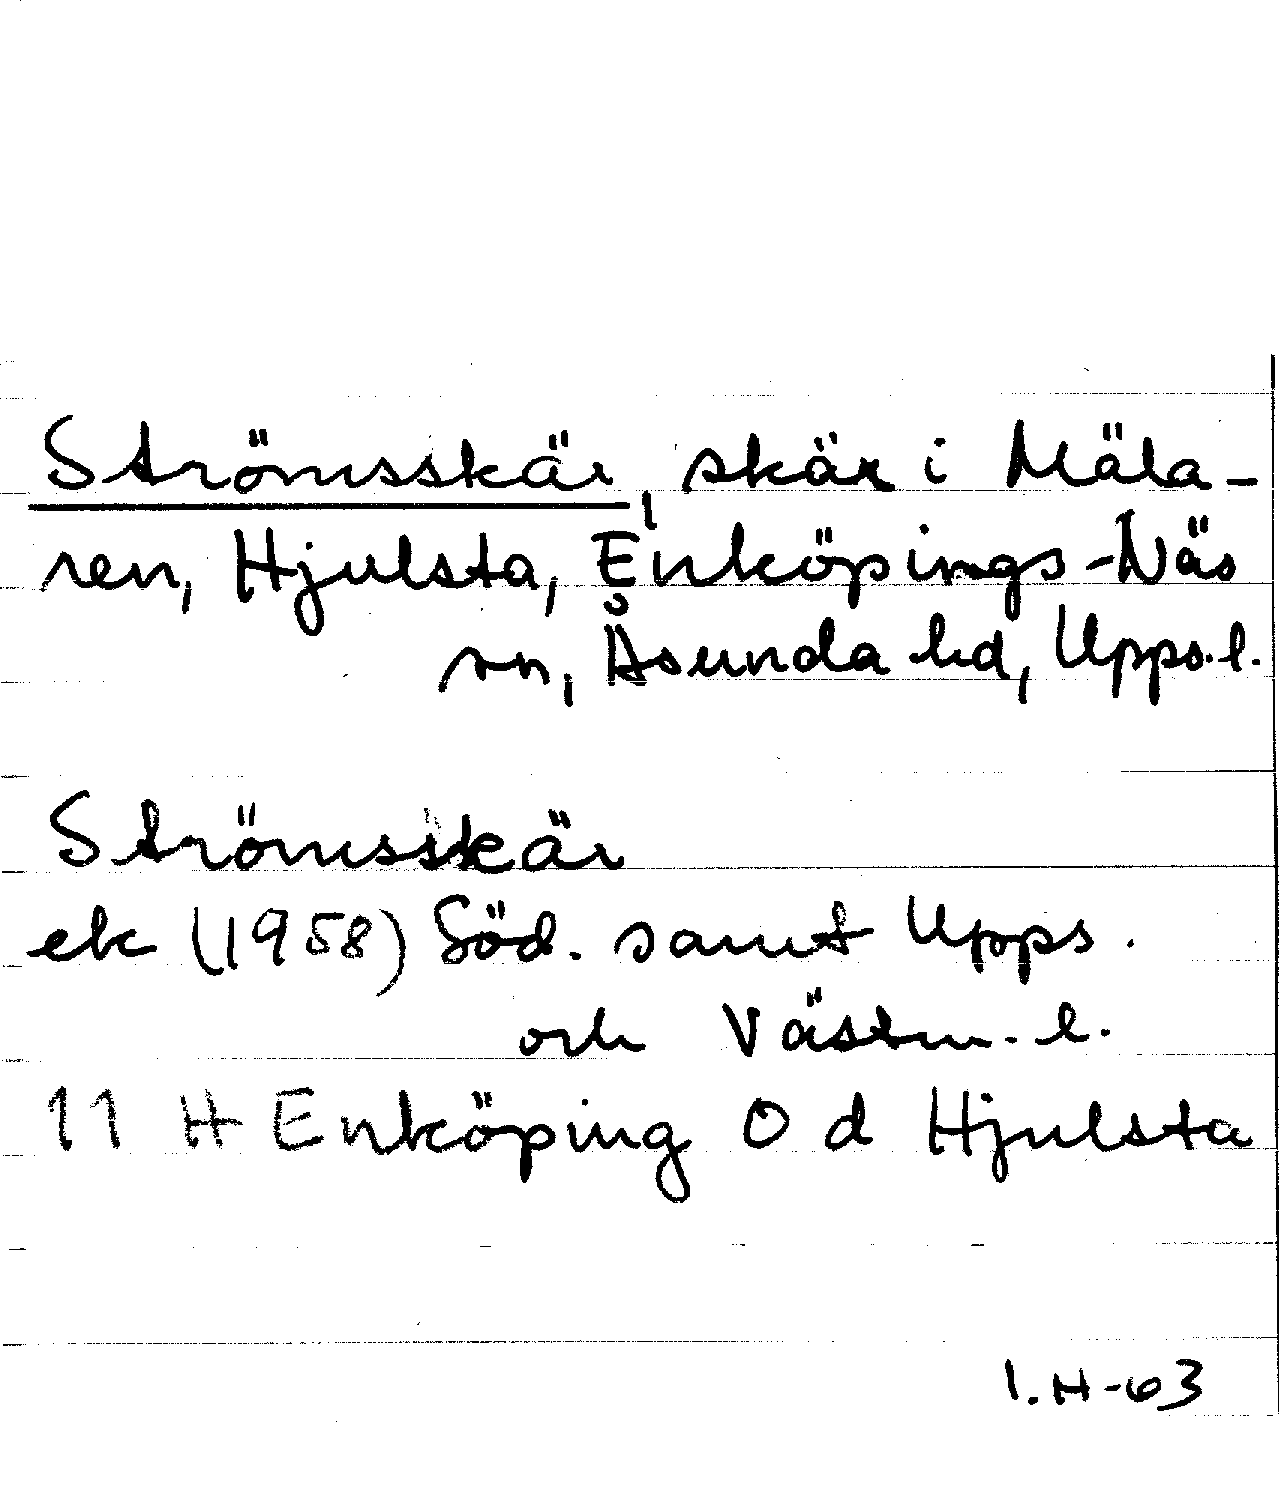 Strömsskär, skär i Mäla-
ren, Hjulsta, Enköpings-Näs
sn, Åsunda hd, Upps.l.
Strömsskär
ek (1958) Söd. samt Upps.
och Västm. l.
11 H Enköping O d Hjulsta
I.H-63